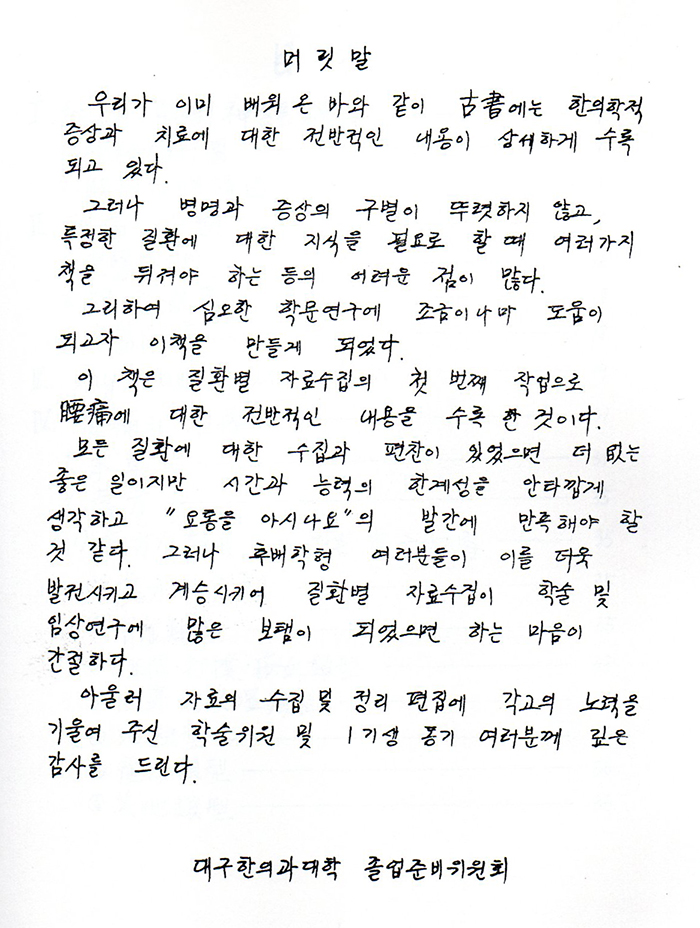 머릿말
우리가 이미 배워 온 바와 같이 古書에는 한의학적
증상과 치료에 대한 전반적인 내용이 상세하게 수록
되고 있다.
그러나 병명과 증상의 구별이 뚜렷하지 않고,
특정한 질환에 대한 지식을 필요로 할 때 여러가지
책을 뒤져야 하는 등의 어려운 점이 많다.
그리하여 심오한 학문연구에 조금이나마 도움이
되고자 이책을 만들게 되었다.
이 책은 질환별 자료수집의 첫 번째 작업으로
腰痛에 대한 전반적인 내용을 수록 한 것이다.
모든 질환에 대한 수집과 편찬이 있었으면 더 없는
좋은 일이지만 시간과 능력의 한계성을 안타깝게
생각하고 "요통을 아시나요"의 발간에 만족해야 할
것 같다. 그러나 후배학형 여러분들이 이를 더욱
발전시키고 계승시키어 질환별 자료수집이 학술 및
임상연구에 많은 보탬이 되었으면 하는 마음이
간절하다.
아울러 자료의 수집 및 정리 편집에 각고의 노력을
기울여 주신 학술위원 및 1기생 동기 여러분께 깊은
감사를 드린다.
대구한의과대학 졸업준비위원회